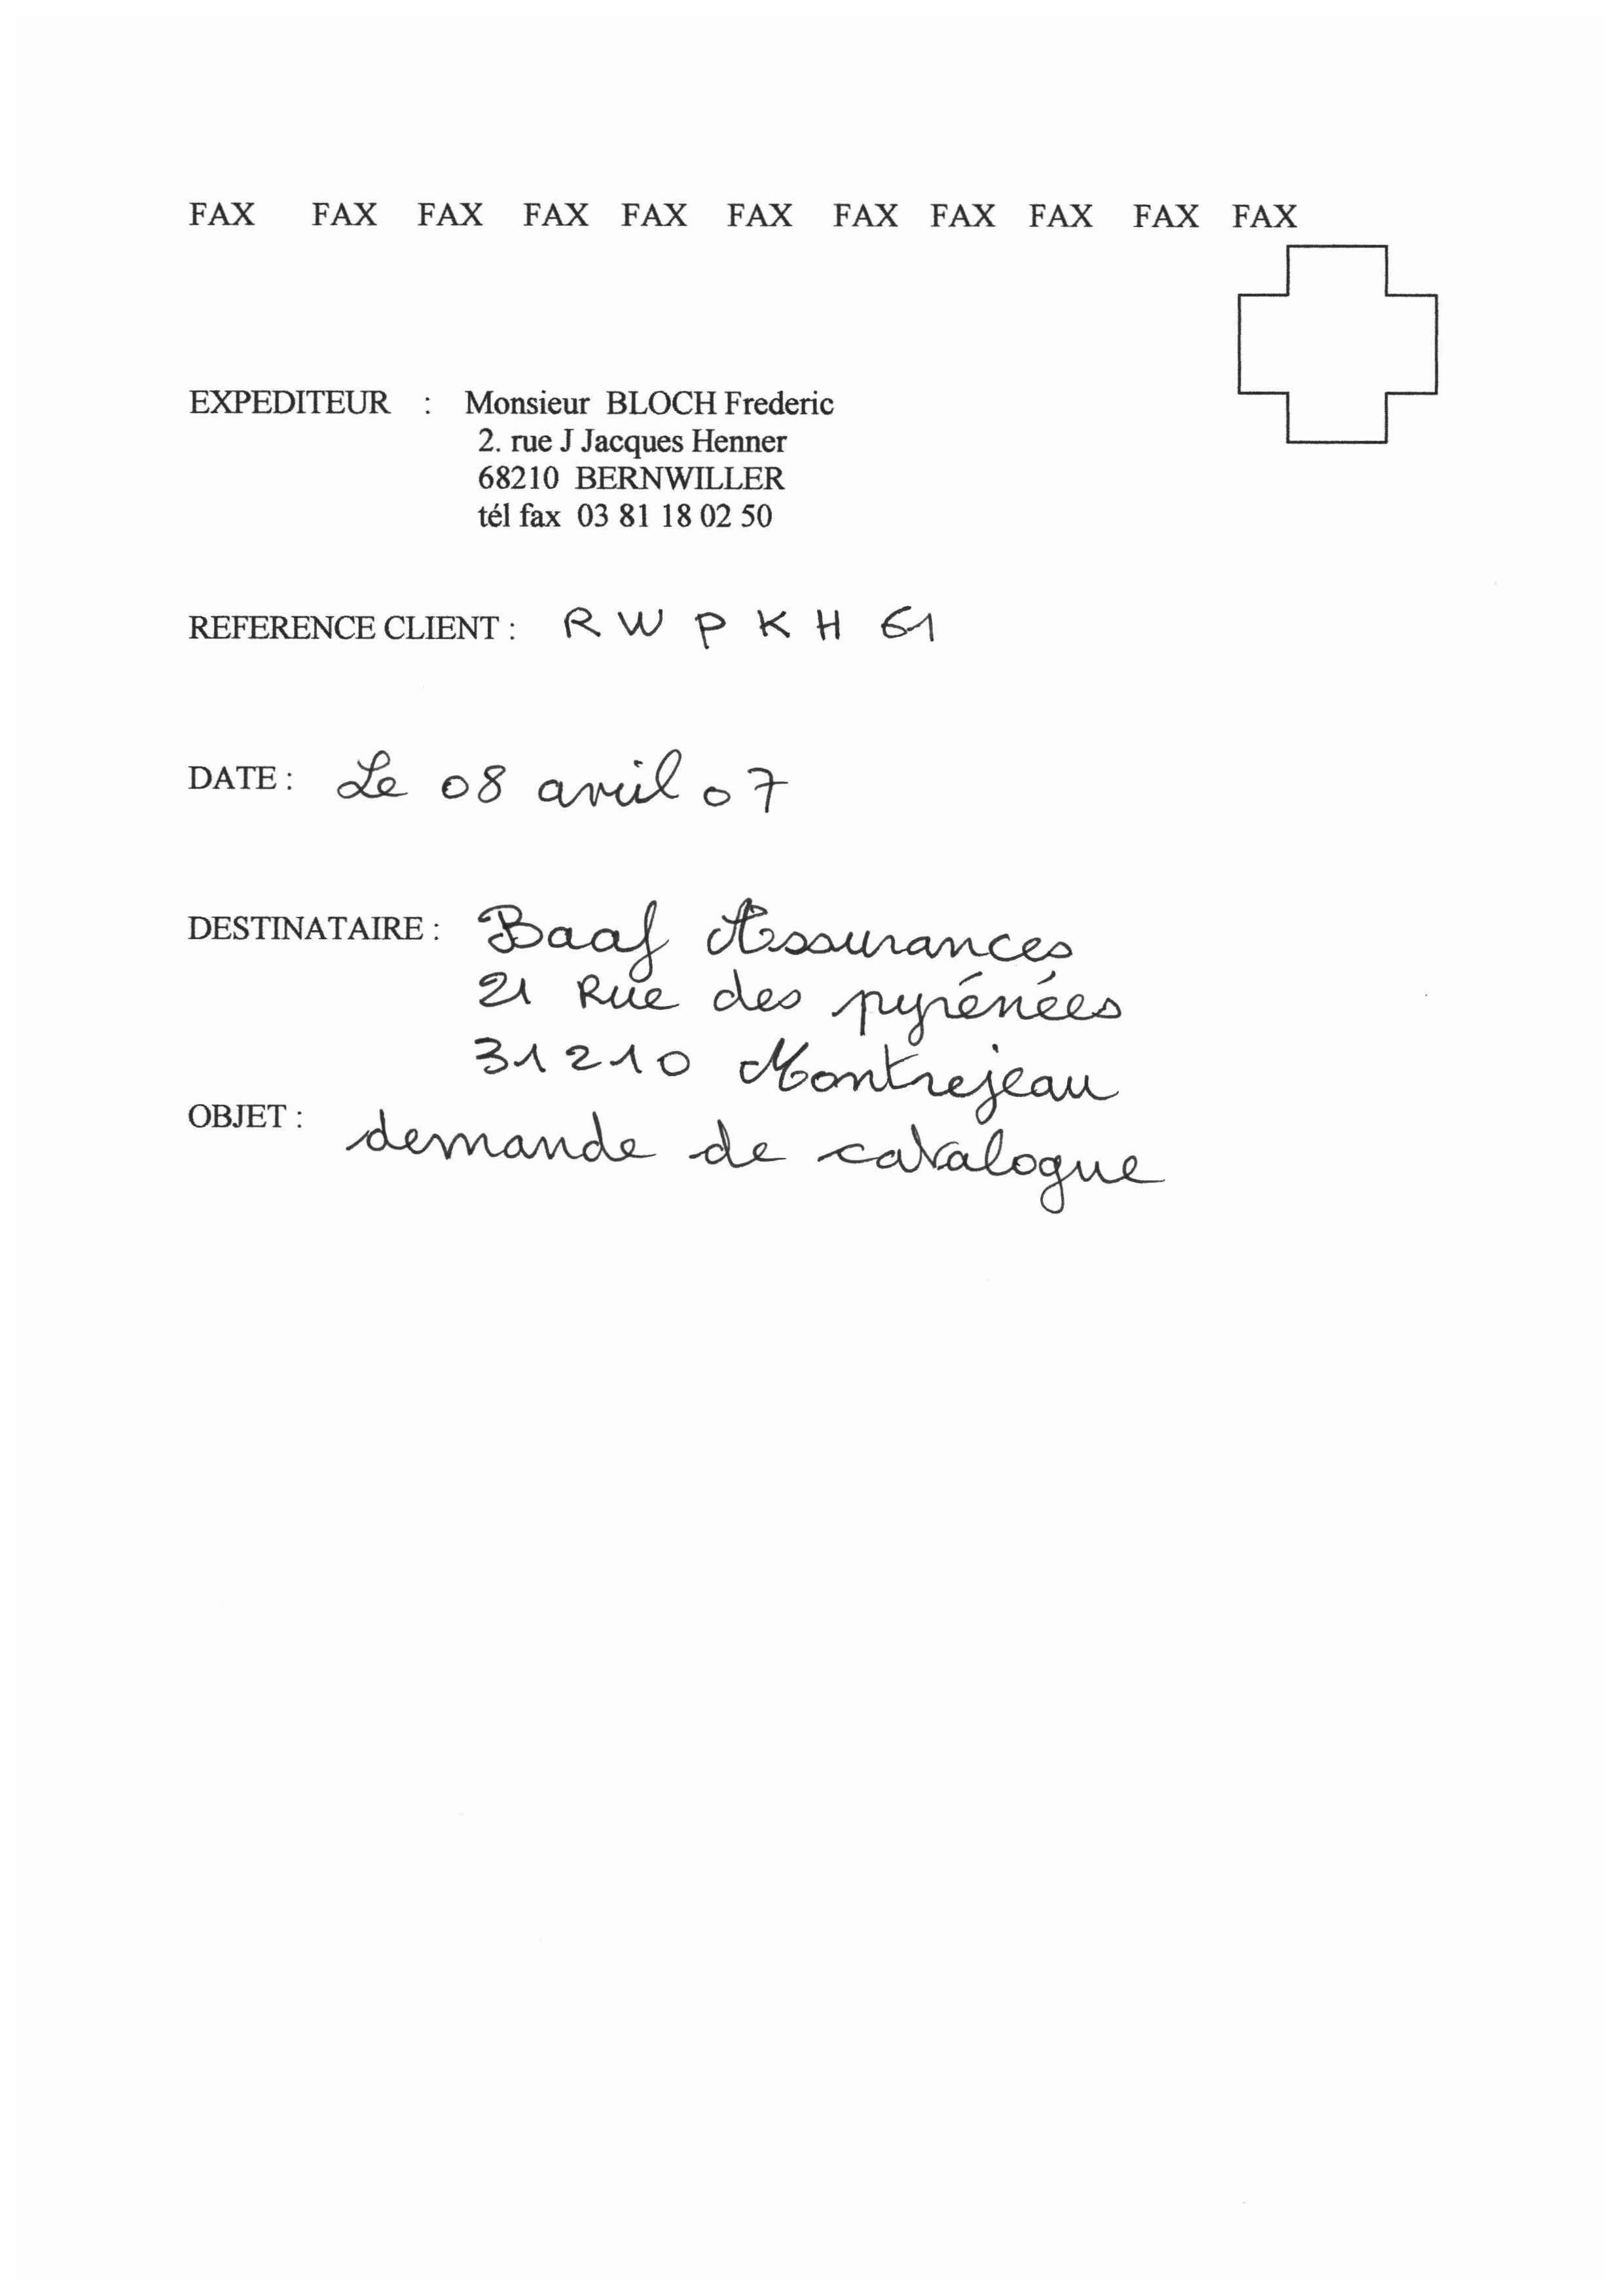 FAX FAX FAX FAX FAX FAX FAX FAX FAX FAX FAX
EXPEDITEUR : Monsieur BLOCH Frederic
2. rue J Jacques Henner
68210 BERNWILLER
tél fax 03 81 18 02 50
REFERENCE CLIENT : RWPKH61
DATE : Le 08 avril 07
DESTINATAIRE : Baaf Assurances
21 Rue des pyrénées
31210 Montrejeau
OBJET : demande de catalogue